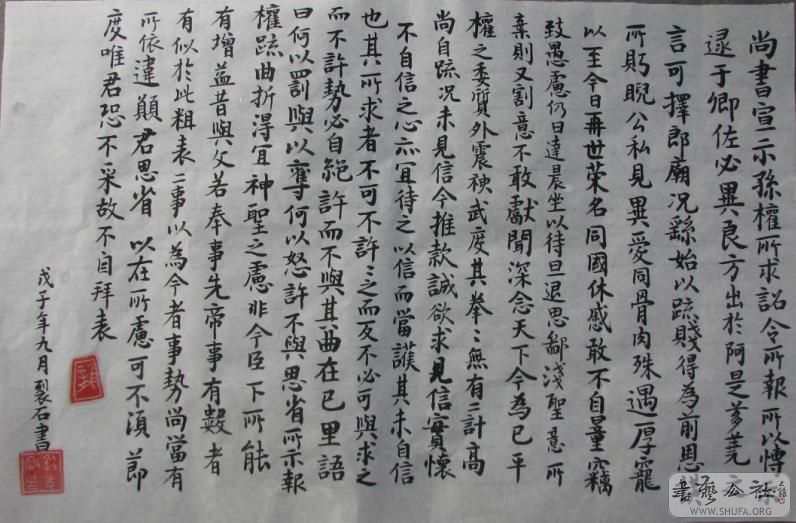 尚書宣示孫權所求詔令所報所以博
逮于卿佐必冀良方出於阿是芻蕘之
言可擇郎廟況繇始以疏賤得為前恩
所眄睨公私見異愛同骨肉殊遇厚寵
以至今日再世榮名同國休戚敢不自量竊
致愚慮仍日達晨坐以待旦退思鄙淺聖意所
棄則又割意不敢獻聞深念天下今為已平
權之委質外震神武度其拳〻無有二計高
尚自疏況未見信今推款誠欲求見信實懷
不自信之心亦宜待之以信而當護其未自信
也其所求者不可不許〻之而反不必可與求之
而不許勢必自絕許而不與其曲在己里語
曰何以罰與以奪何以怒許不與思省所示報
權疏曲折得宜神聖之慮非今臣下所能
有增益昔與文若奉事先帝事有數者
有似於此粗表二事以為今者事勢尚當有
所依違願君思省 以在所慮可不須節
度唯君恐不采故不自拜表
戊子年九月裂石書
書藝公社
WWW.SHUFA.ORG